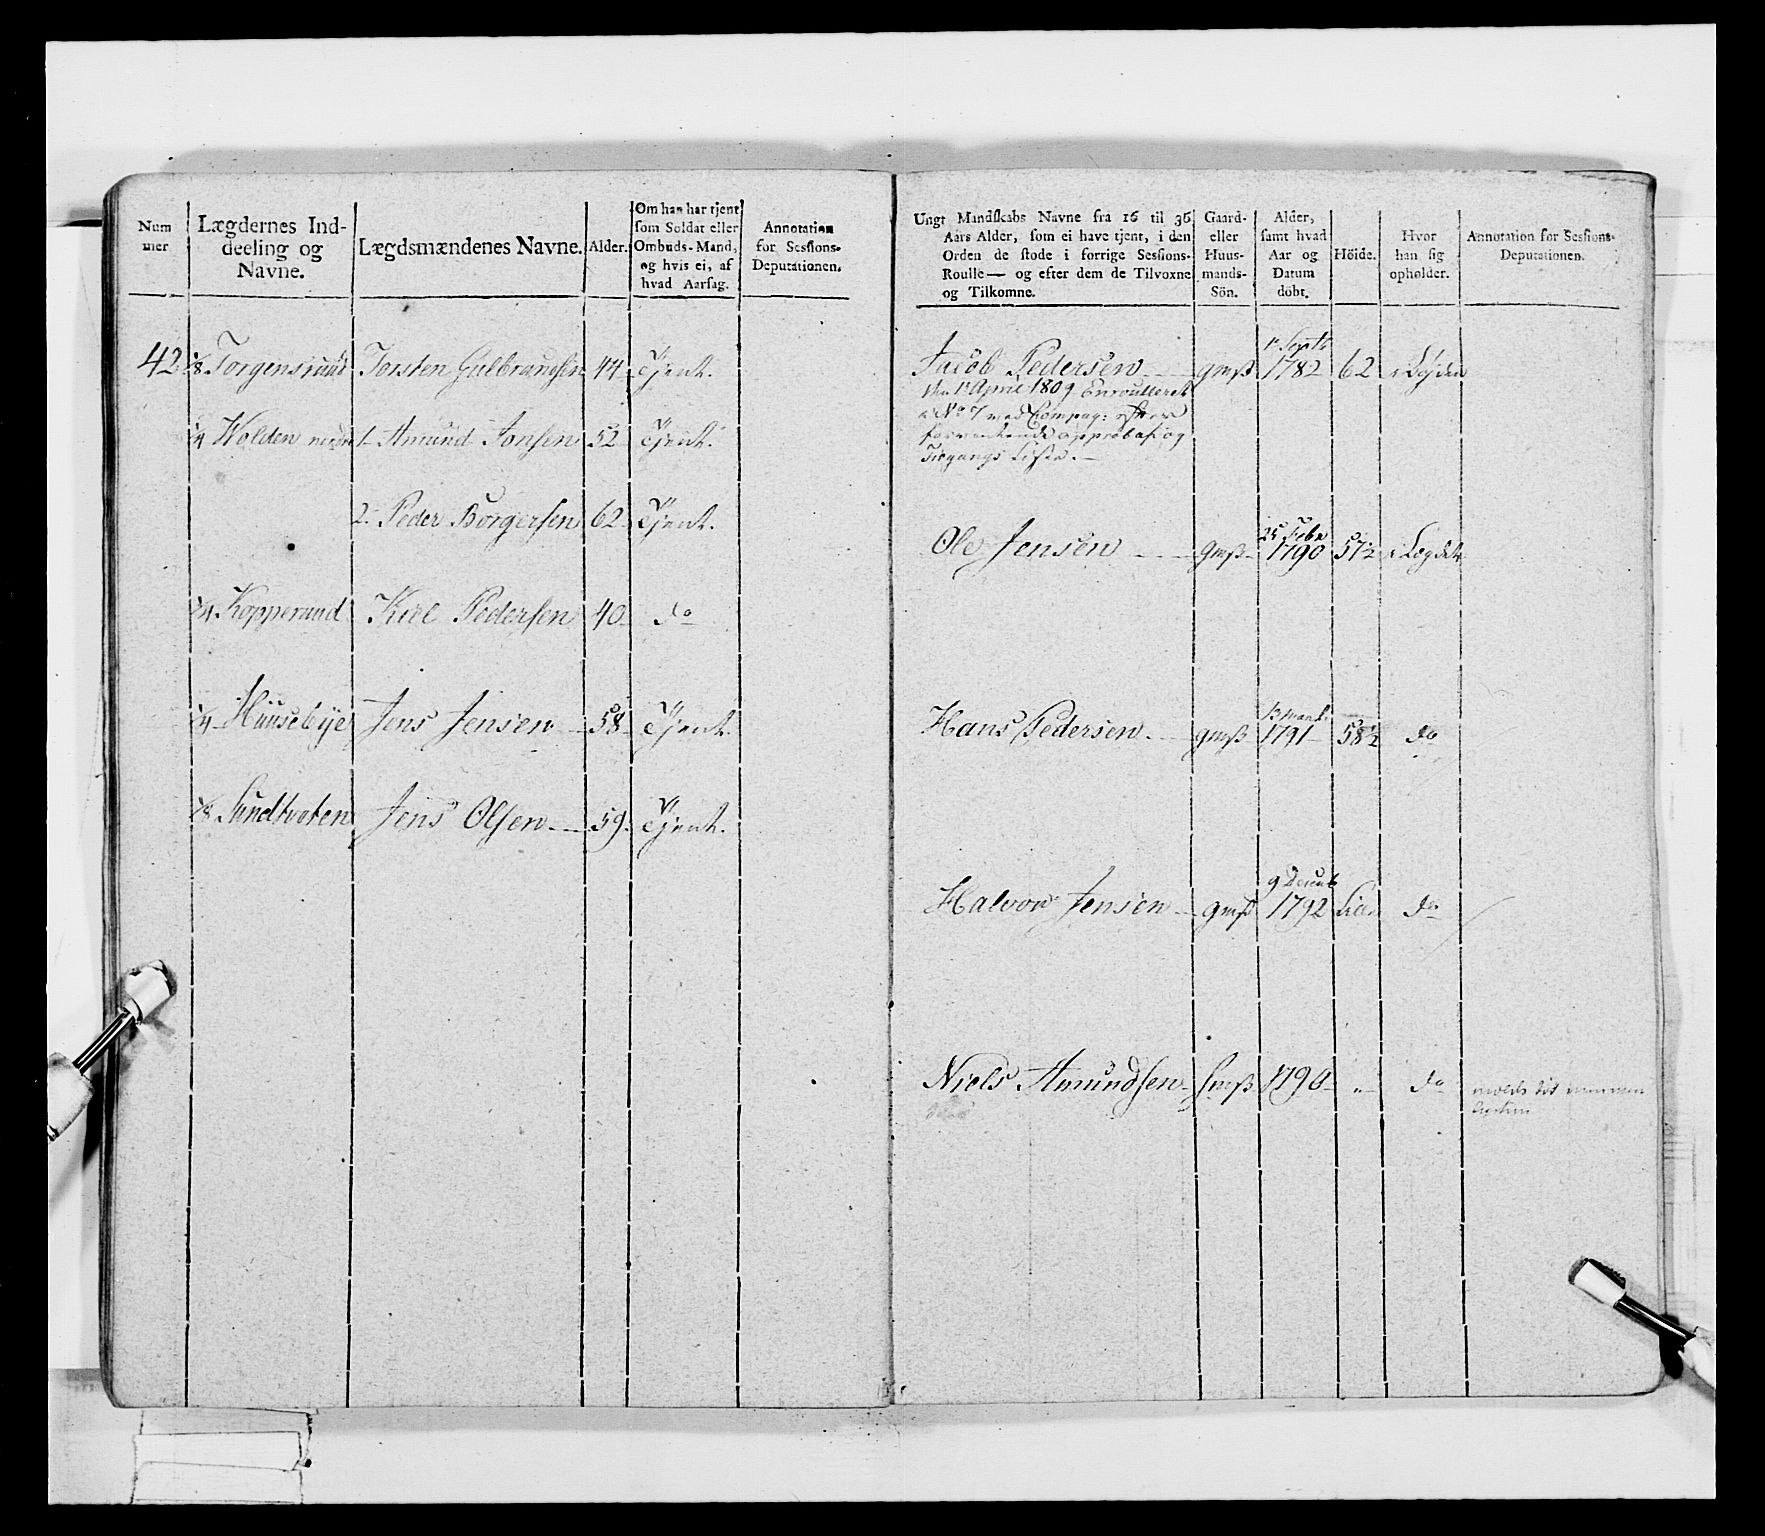 Num
mer
Lægdernes Ind-
deeling og
Navne.
Lægdsmændenes Navne.
Alder.
Om han har tjent
som Soldat eller
Ombuds-Mand,
og hvis ei, af
hvad Aarsag.
Annotation
for Sessions-
Deputationen.
42 1/8 Torgensruud Torsten Gulbrandsen 44 Tjent.
1/4 Wolden 1. Amund Jonsen 52 Tjent.
2. Peder Borgersen 62 Tjent.
1/4 Kopperuud Kiel Pedersen 40 do
1/4 Huusebye Jens Jensen 58 Tjent.
1/8 Sundtveten Jens Olsen 59 Tjent.
Ungt Mandskabs Navne fra 16 til 36
Aars Alder, som ei have tjent, i den
Orden de stode i forrige Sessions-
Roulle — og efter dem de Tilvoxne
og Tilkomne.
Gaard-
eller
Huus-
mands-
Sön.
Alder,
samt hvad
Aar og
Datum
döbt.
Höide.
Hvor
han sig
opholder.
Annotation for Sessions-
Deputationen.
Septb
Jacob Pedersen gmß 1782 62 i Lægden
April 1809 Enroulleret
No 7 ved Compag:
approbation
Tilgangs Liste.
25 Febr
Ole Jensen gmß 1790 57½ i Lægdet
13 Marti
Hans Pedersen gmß 1791 58½ do
9 Decemb
Halvor Jensen gmß 1792 do
Niels Amundsen hmß 1790 " do